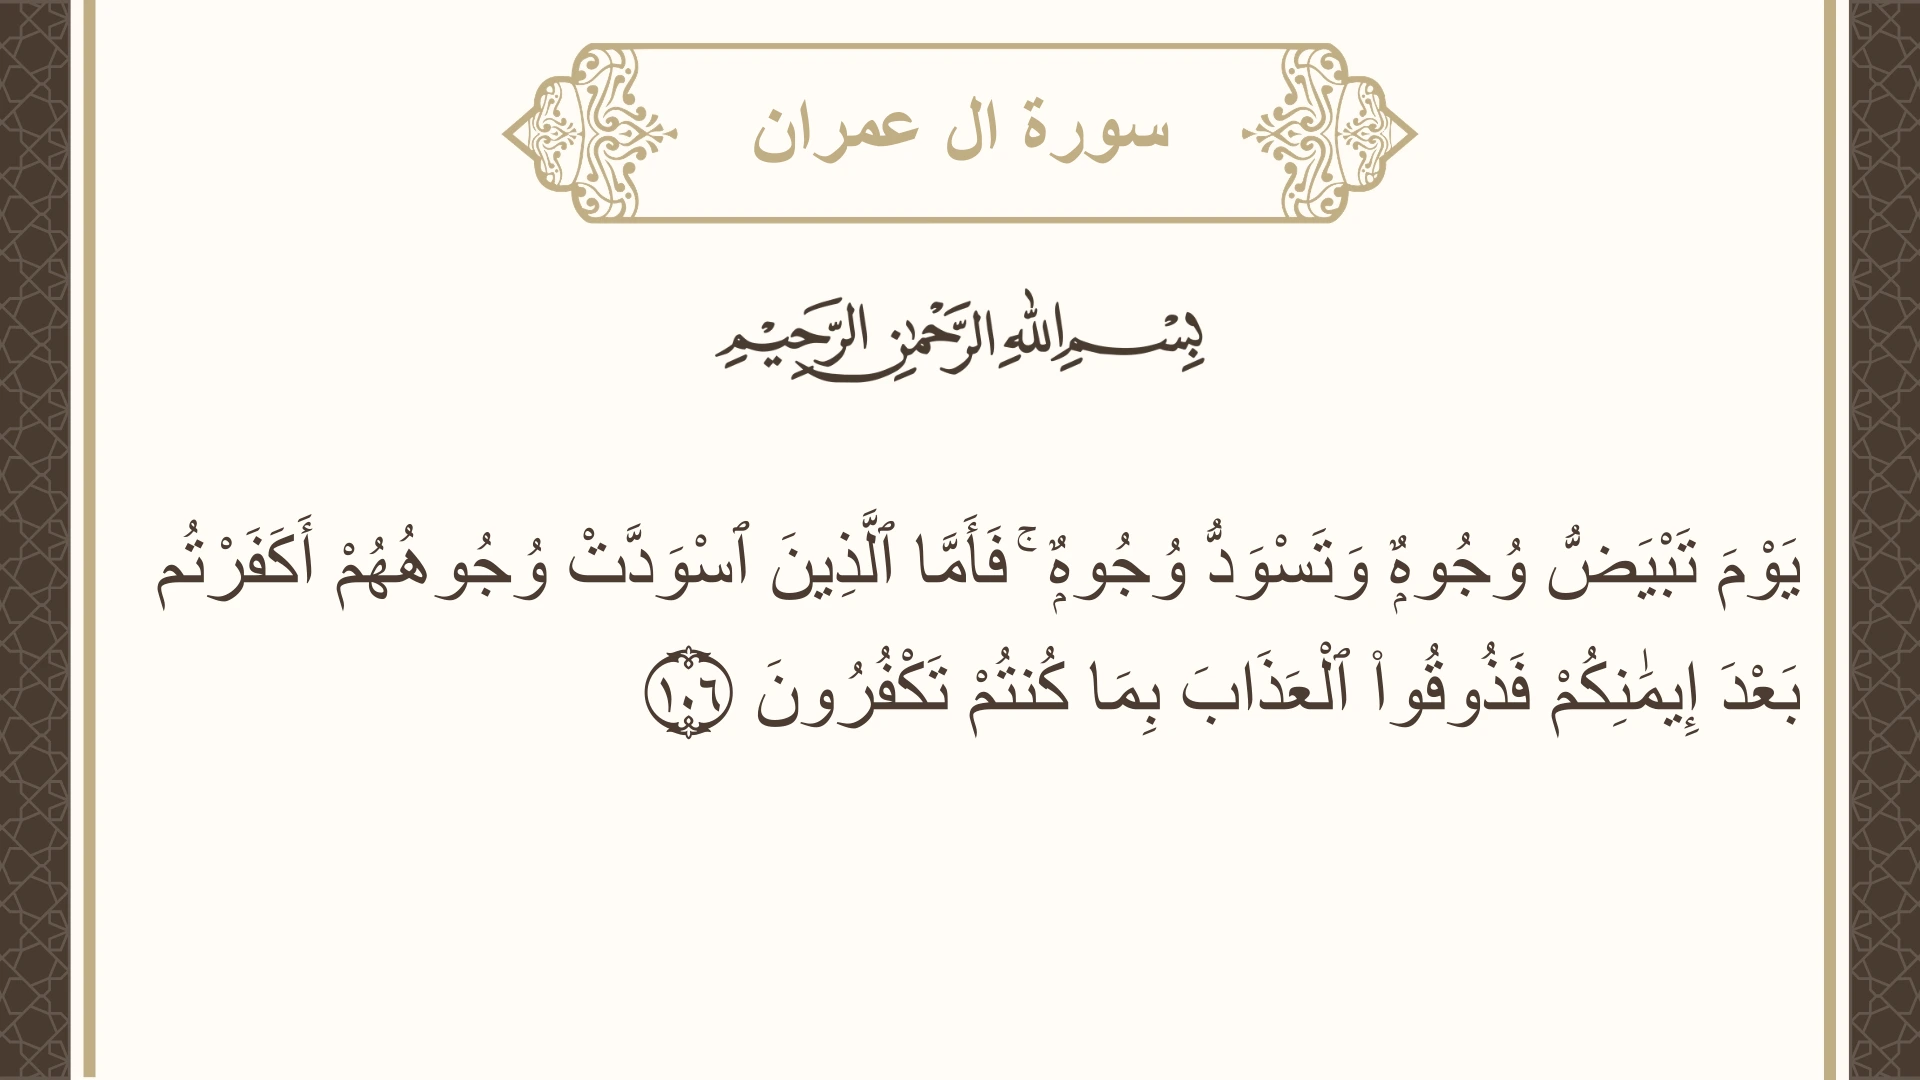 سورة ال عمران
بِسْمِ اللهِ الرَّحْمٰنِ الرَّحِيْمِ
يَوْمَ تَبْيَضُّ وُجُوهٌۭ وَتَسْوَدُّ وُجُوهٌۭ ۚ فَأَمَّا ٱلَّذِينَ ٱسْوَدَّتْ وُجُوهُهُمْ أَكَفَرْتُم
بَعْدَ إِيمَٰنِكُمْ فَذُوقُوا۟ ٱلْعَذَابَ بِمَا كُنتُمْ تَكْفُرُونَ ١٠٦